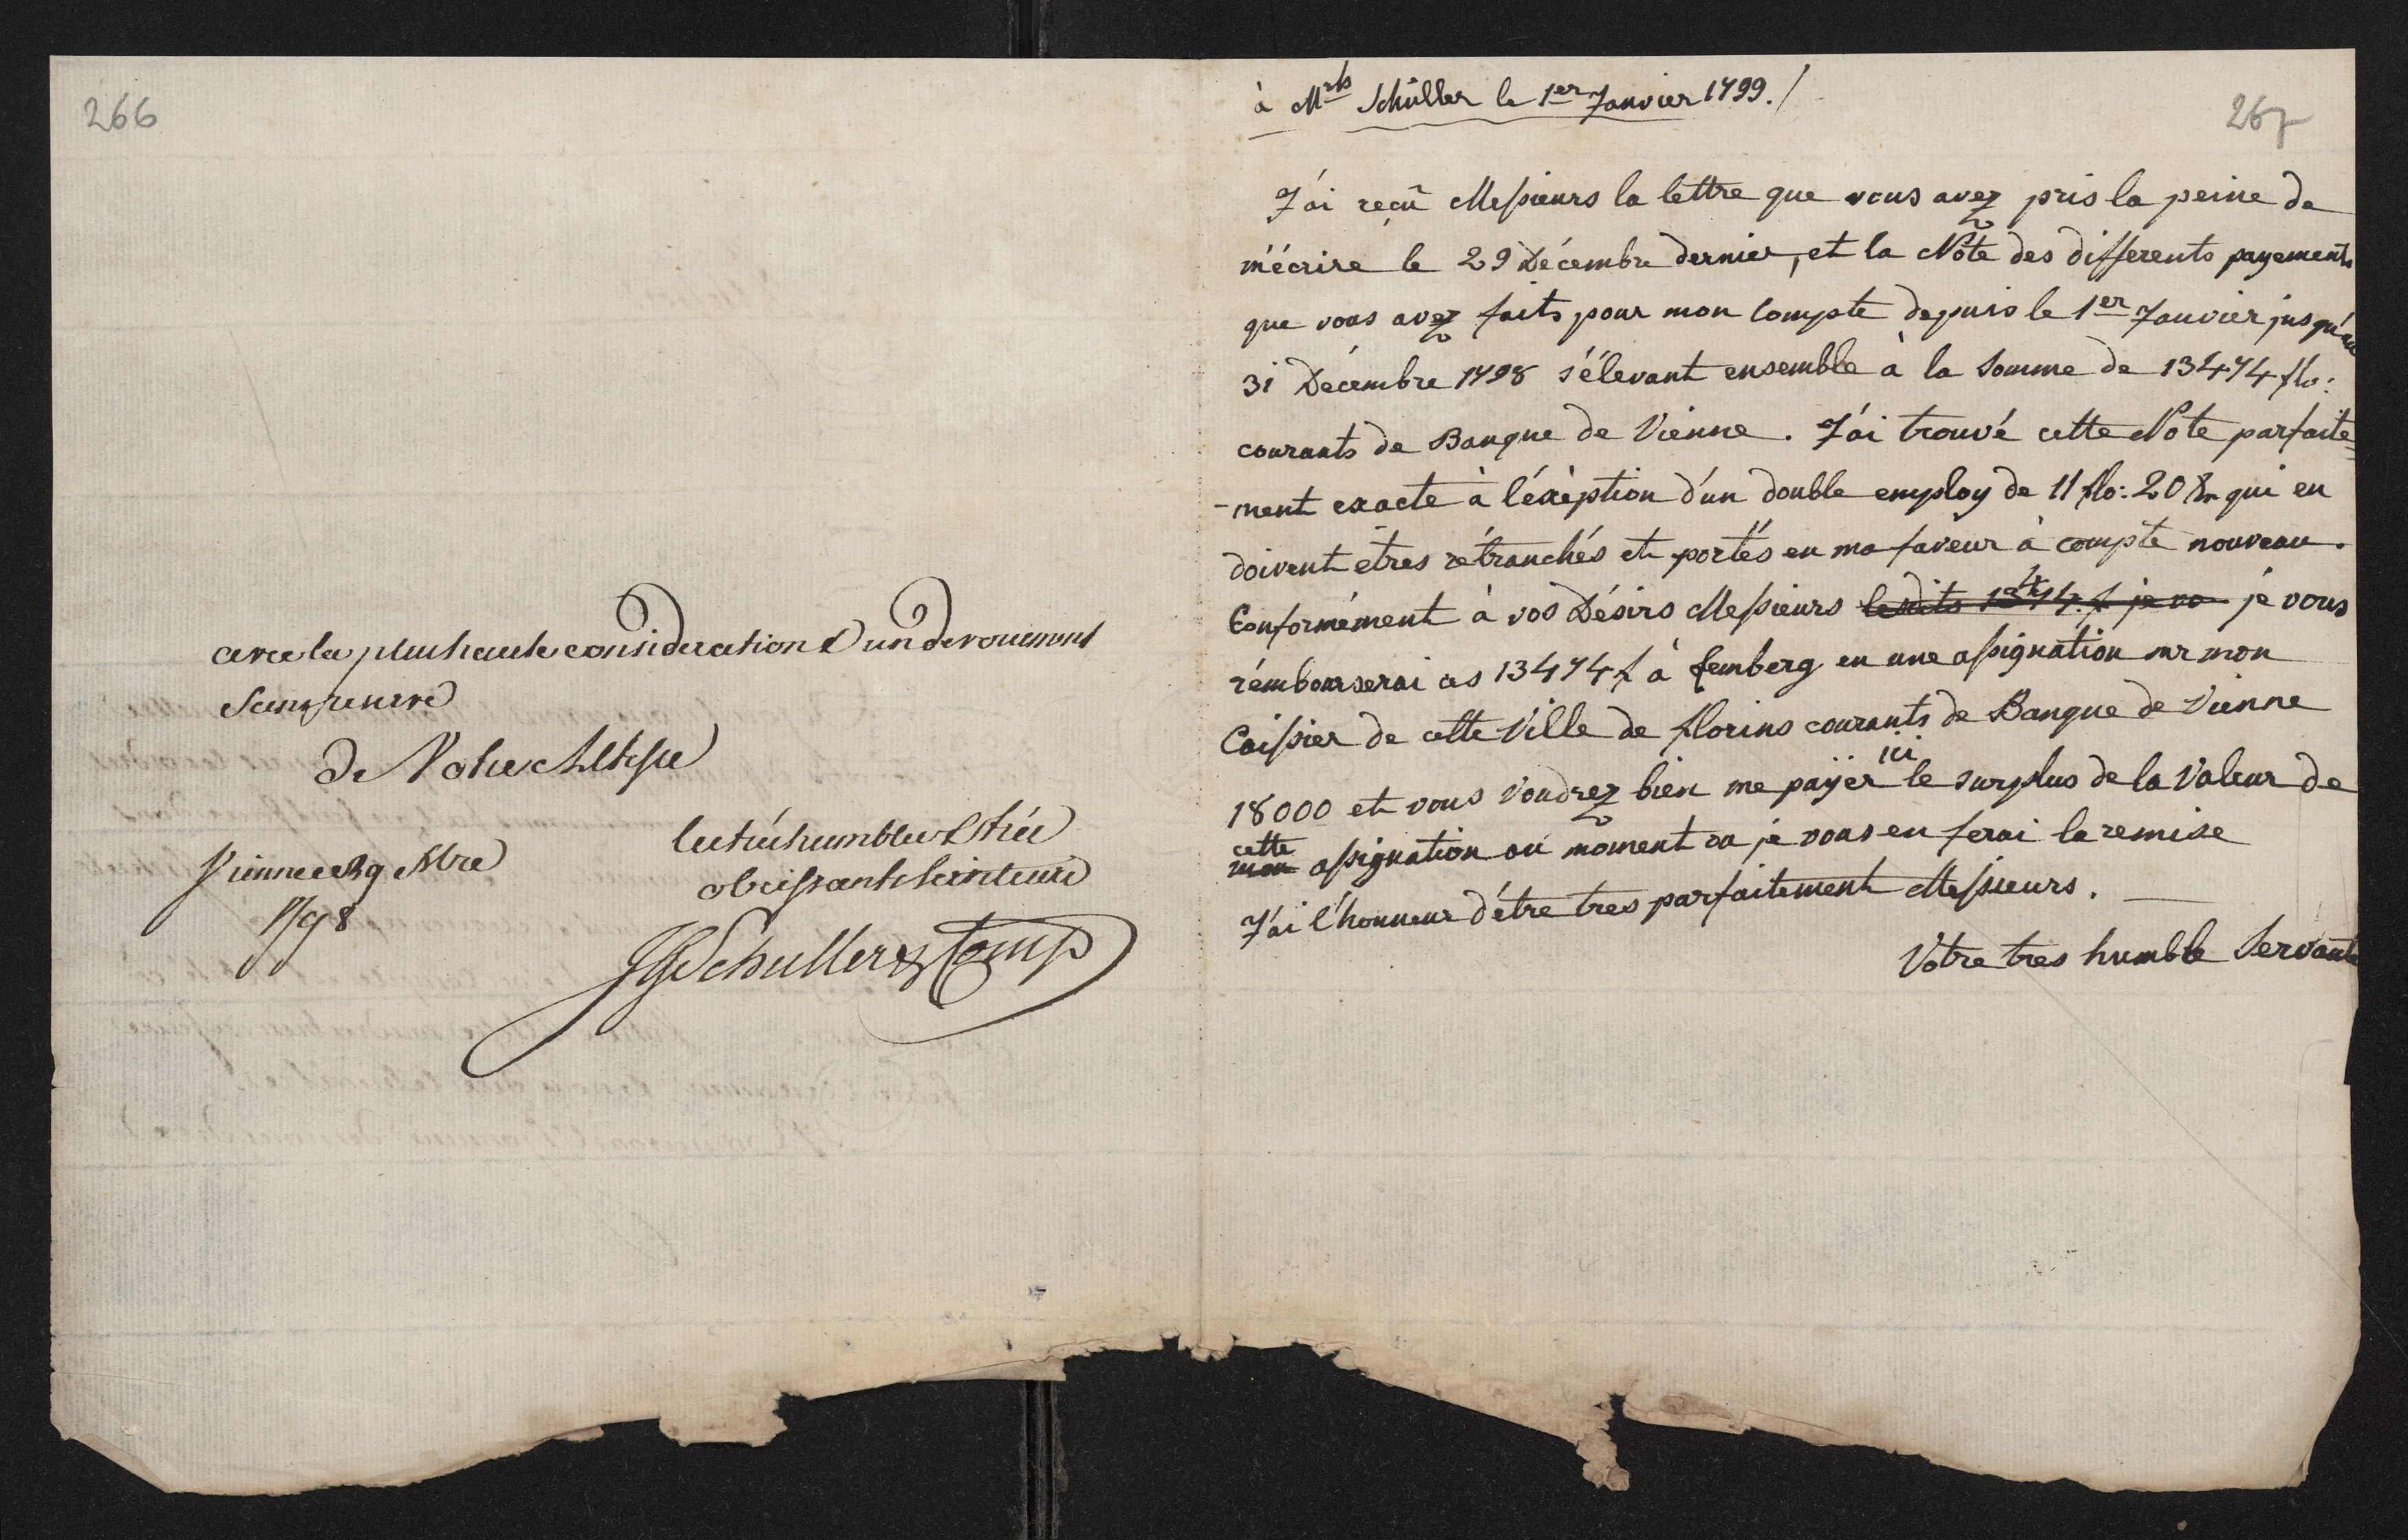 266
avec la plus haute consideration & un devouement
sans reserve
de Votre Altesse
les très humbles & très
obeissants serviteurs
Vienne ce 29 Xbre
1798
JGSchuller & Comp
267
à Mrs Schüller le 1er Janvier 1799./
J'ai reçû Messieurs la lettre que vous avez pris la peine de
m'écrire le 29 Décembre dernier, et la Note des differents payements
que vous avez faits pour mon Compte depuis le 1er Janvier jusqu'au
31 Décembre 1798 s'élevant ensemble à la Somme de 13474 flo:
courants de Banque de Vienne. J'ai trouvé cette Note parfaite=
-ment exacte à l'éxéption d'un double employ de 11 flo: 20 Xr qui en
doivent etres rétranchés et portés en ma faveur à compte nouveau.
Conformément à vos Désirs Messieurs lesdits 13474 f je vo je vous
rémbourserai ces 13474 f à Lemberg en une assignation sur mon
Caissier de cette Ville de florins courants de Banque de Vienne
18000 et vous voudrez bien me payer ici le surplus de la Valeur de
mon cette assignation au moment où je vous en ferai la remise
J'ai l'honneur d'être tres parfaitement Messieurs.
Votre tres humble Servante